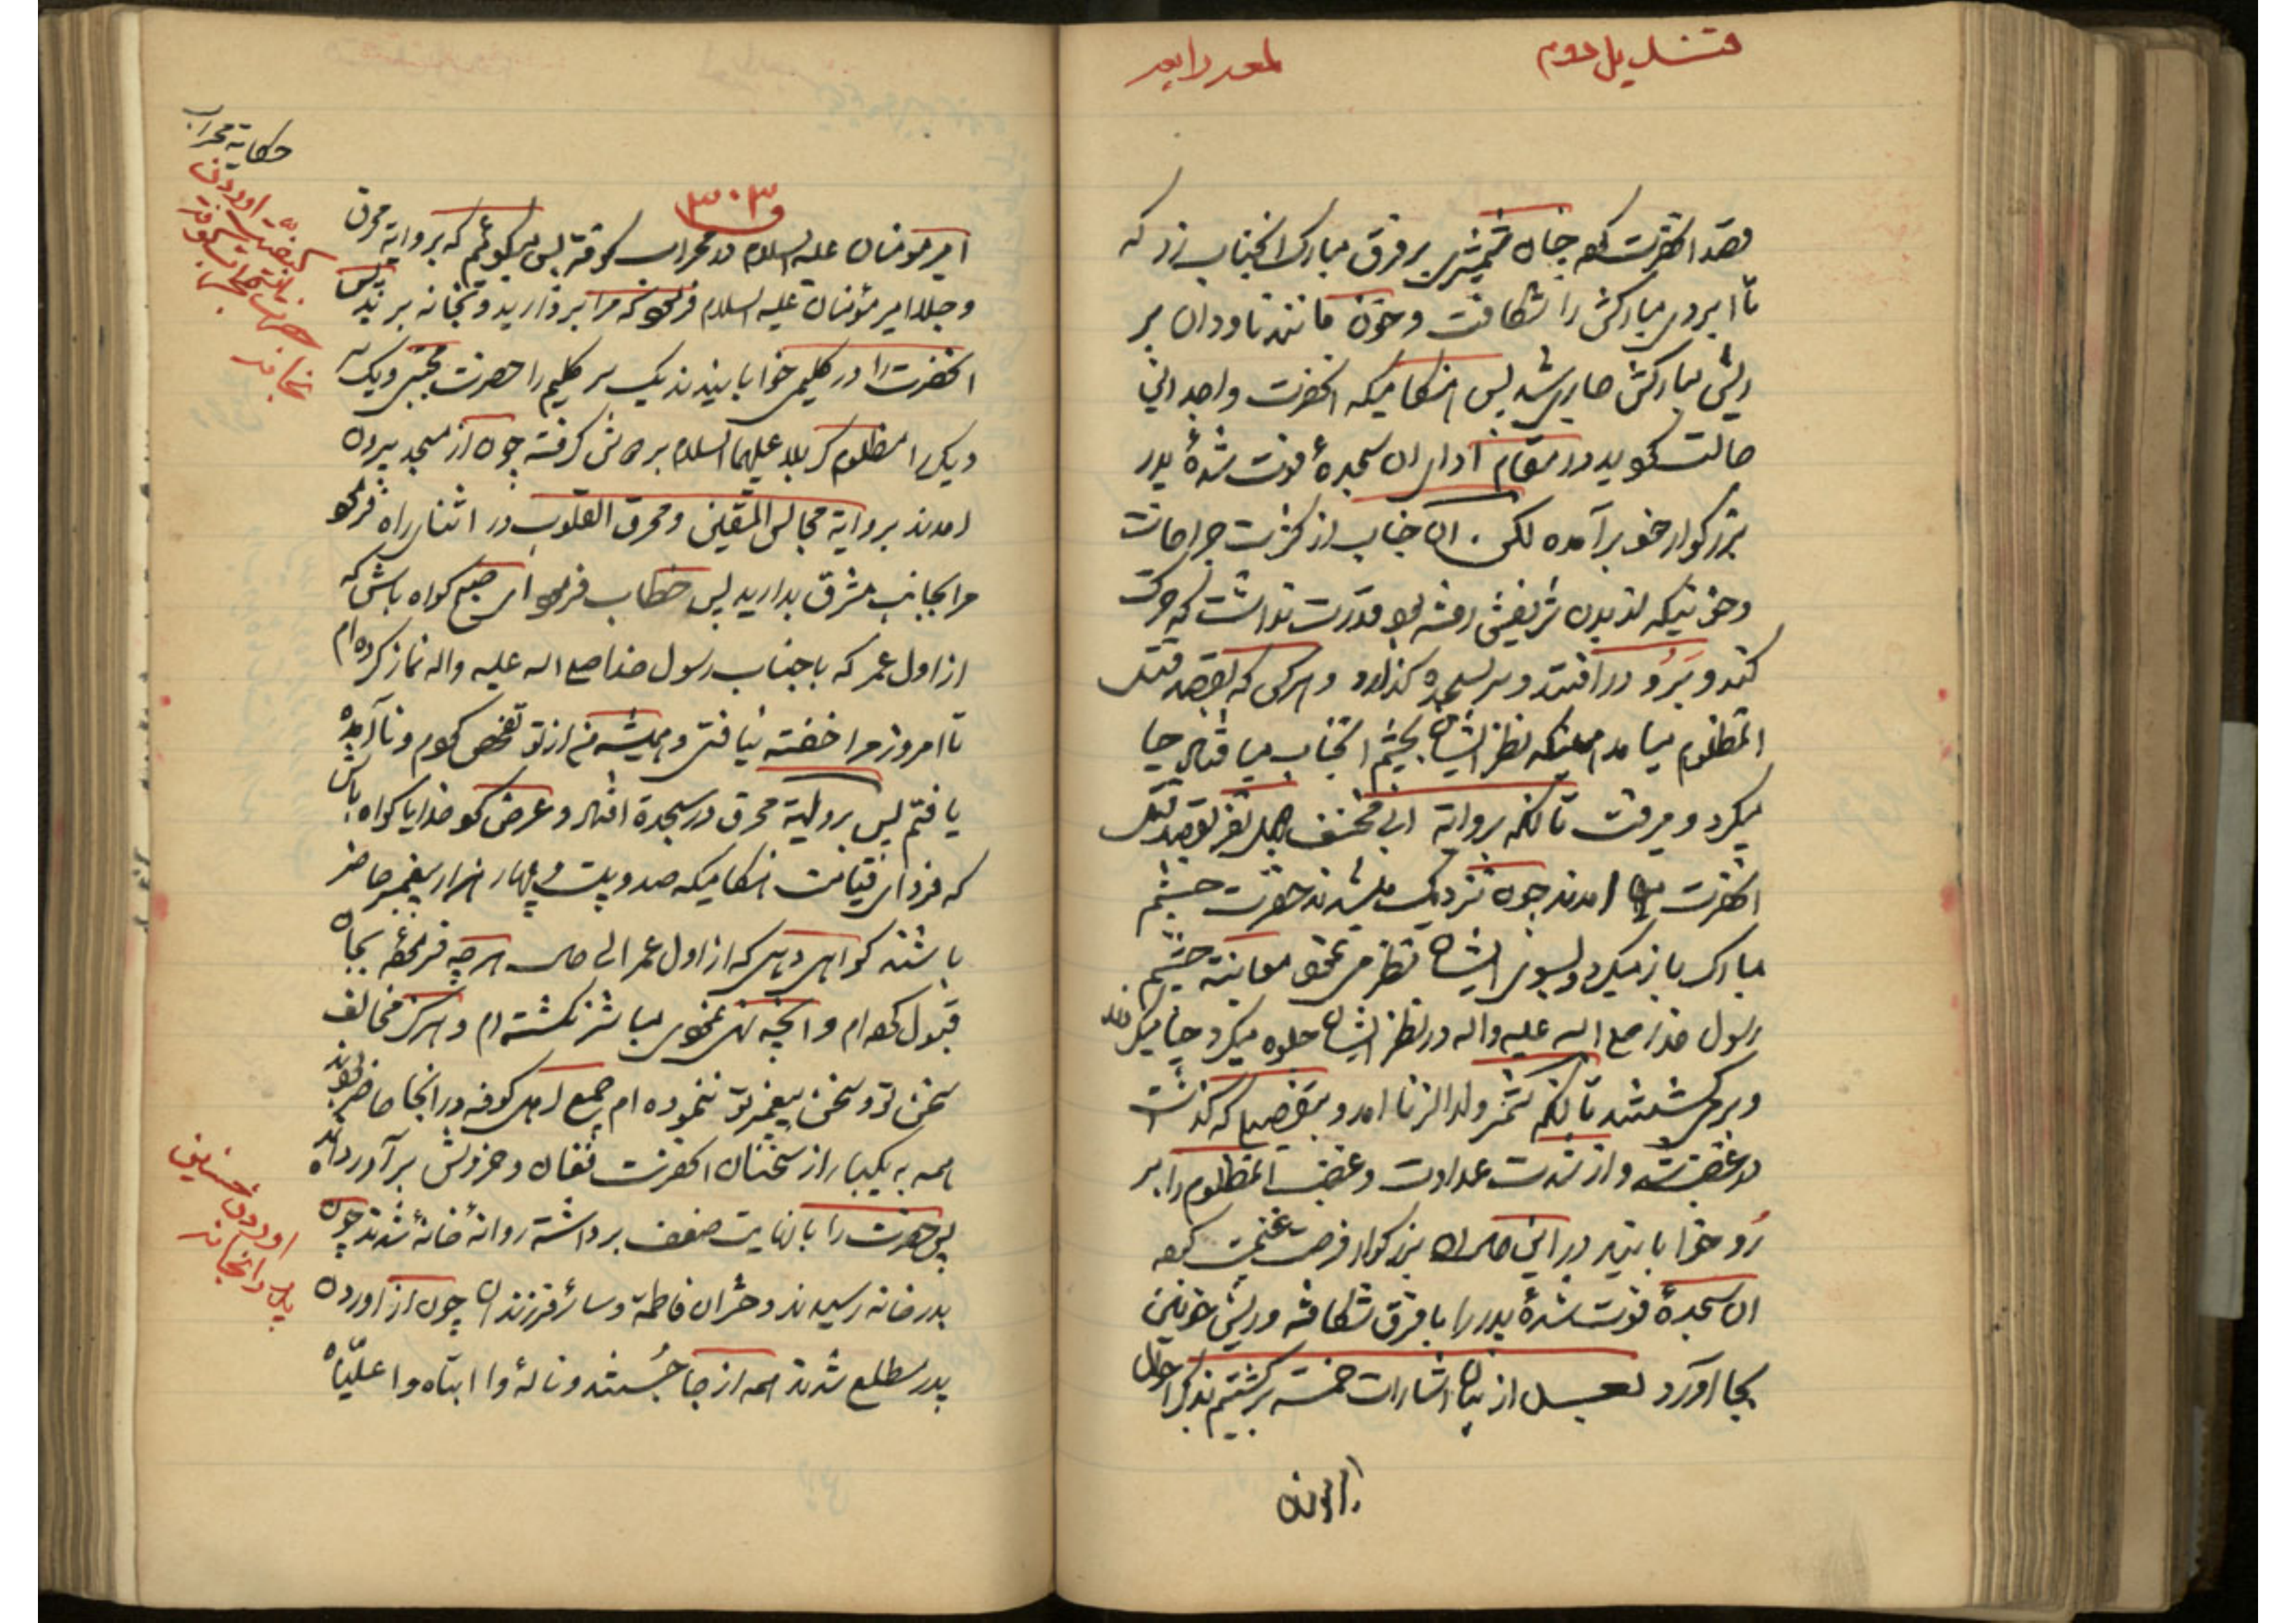 قندیل دوم
لمعه رابعه
قصد انحضرت کرد چنان شمشیری بر فرق مبارک انجناب زد که
تا ابروی مبارکش را شکافت و خون مانند ناودان بر
ریش مبارکش جاری شد پس هنگامیکه انحضرت واجد این
حالت گردید در مقام ادای ان سجدهٔ فوت شدهٔ پدر
بزرگوار خود برآمده لکن ان جناب از کثرت جراحات
و خونیکه از بدن شریفش رفته بود قدرت نداشت که حرکت
کند و برو درافتد و سر بسجده گذارد و هرکس که بقصد قتل
انمظلوم میامد همینکه نظر ایشان بچشم انجناب میافتاد حیا
میکرد و میرفت تا انکه بروایة ابی مخنف چهل نفر بقصد قتل
انحضرت امدند چون نزدیک میشدند حضرت چشم
مبارک باز میکرد و بسوی ایشان نظر می نمود معاینه چشم
رسول خدا صلع اله علیه واله در نظر ایشان جلوه میکرد حیا میکردند
و برمیگشتند تا انکه شمر ولد الزنا امد و بتفصیلی که گذشت
در غضب شد و از شدت عداوت و غضب انمظلوم را بر
رُو خوابانید در این حال ان بزرگوار فرصت غنیمت کرده
ان سجدهٔ فوت شدهٔ پدر را با فرق شکافته و ریش خونین
بجا آورد بعد از بیان اشارات خمسه برگشتیم بذکر احوال
۳۰۳
امیر مومنان علیه السلام در محراب کوفه پس میگوئیم که بروایة محرق
و جلاء امیر مؤمنان علیه السلام فرمود که مرا بردارید و بخانه برید پس
انحضرت را در کلیمی خوابانیدند یک سر کلیم را حضرت مجتبی و یک سر
دیگر را مظلوم کربلا علیهما السلام بر دوش گرفته چون از مسجد بیرون
امدند بروایة مجالس المتقین و محرق القلوب در اثنای راه فرمود
مرا بجانب مشرق بدارید پس خطاب فرمود ای صبح گواه باش که
از اول عمر که با جناب رسول خدا صلع اله علیه واله نماز کرده ام
تا امروز مرا خفته نیافتی و همیشه من از تو تفحص کردم و ناآمده
یافتم پس بروایة محرق در سجده افتاد و عرض کرد خدایا گواه باش
که فردای قیامت هنگامیکه صد و بیست و چهار هزار پیغمبر حاضر
باشند گواهی دهی که از اول عمر الی حال هرچه فرمودهٔ بجان
قبول کرده ام و انچه نهی نمودی مباشر نگشته ام و هرگز مخالف
سخن تو و سخن پیغمبر تو ننموده ام جمیع اهل کوفه در انجا حاضر بودند
همه به یکبار از سخنان انحضرت فغان و خروش برآوردند
پس حضرت را با نهایت ضعف برداشته روانهٔ خانهٔ شدند چون
بدر خانه رسیدند دختران فاطمه و سائر فرزندان چون از اوردن
پدر مطلع شدند همه از جا جستند و نالهٔ وا ابتاه وا علیّاه
حکایة محراب
اوردن حسنین
پدر را بخانه